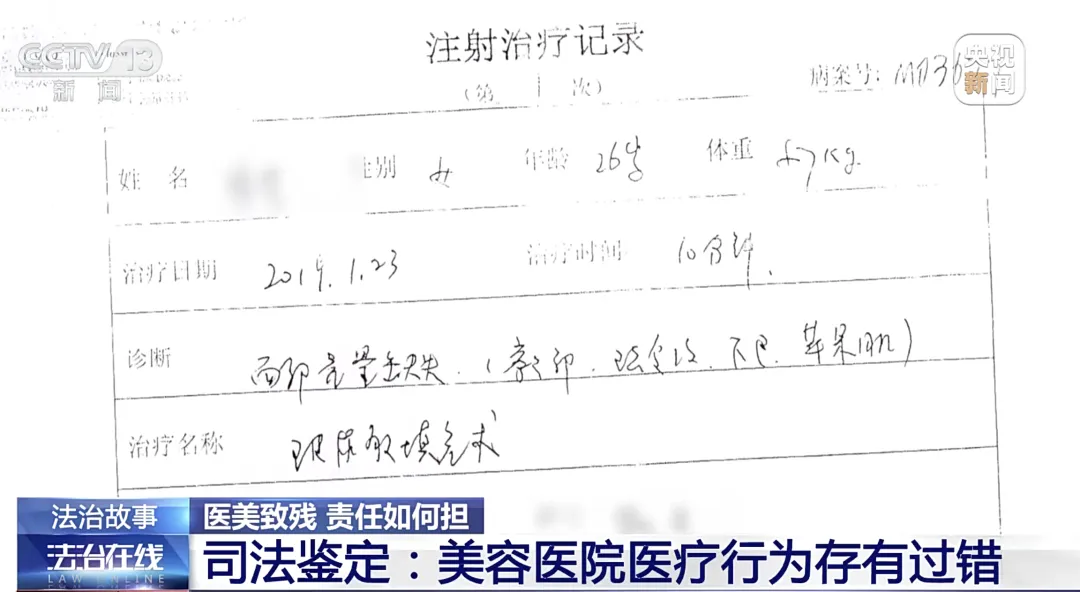 CCTV 13
新闻
央视
新闻
注射治疗记录
(第 1 次)
病案号: M036
姓名 性别 女 年龄 26岁 体重 57kg.
治疗日期 2019.1.23 治疗时间 10分钟.
诊断 面部容量缺失.( 下巴. 苹果肌)
治疗名称 玻尿酸填充术
法治故事
医美致残 责任如何担
法治在线
LAW ONLINE
司法鉴定：美容医院医疗行为存有过错